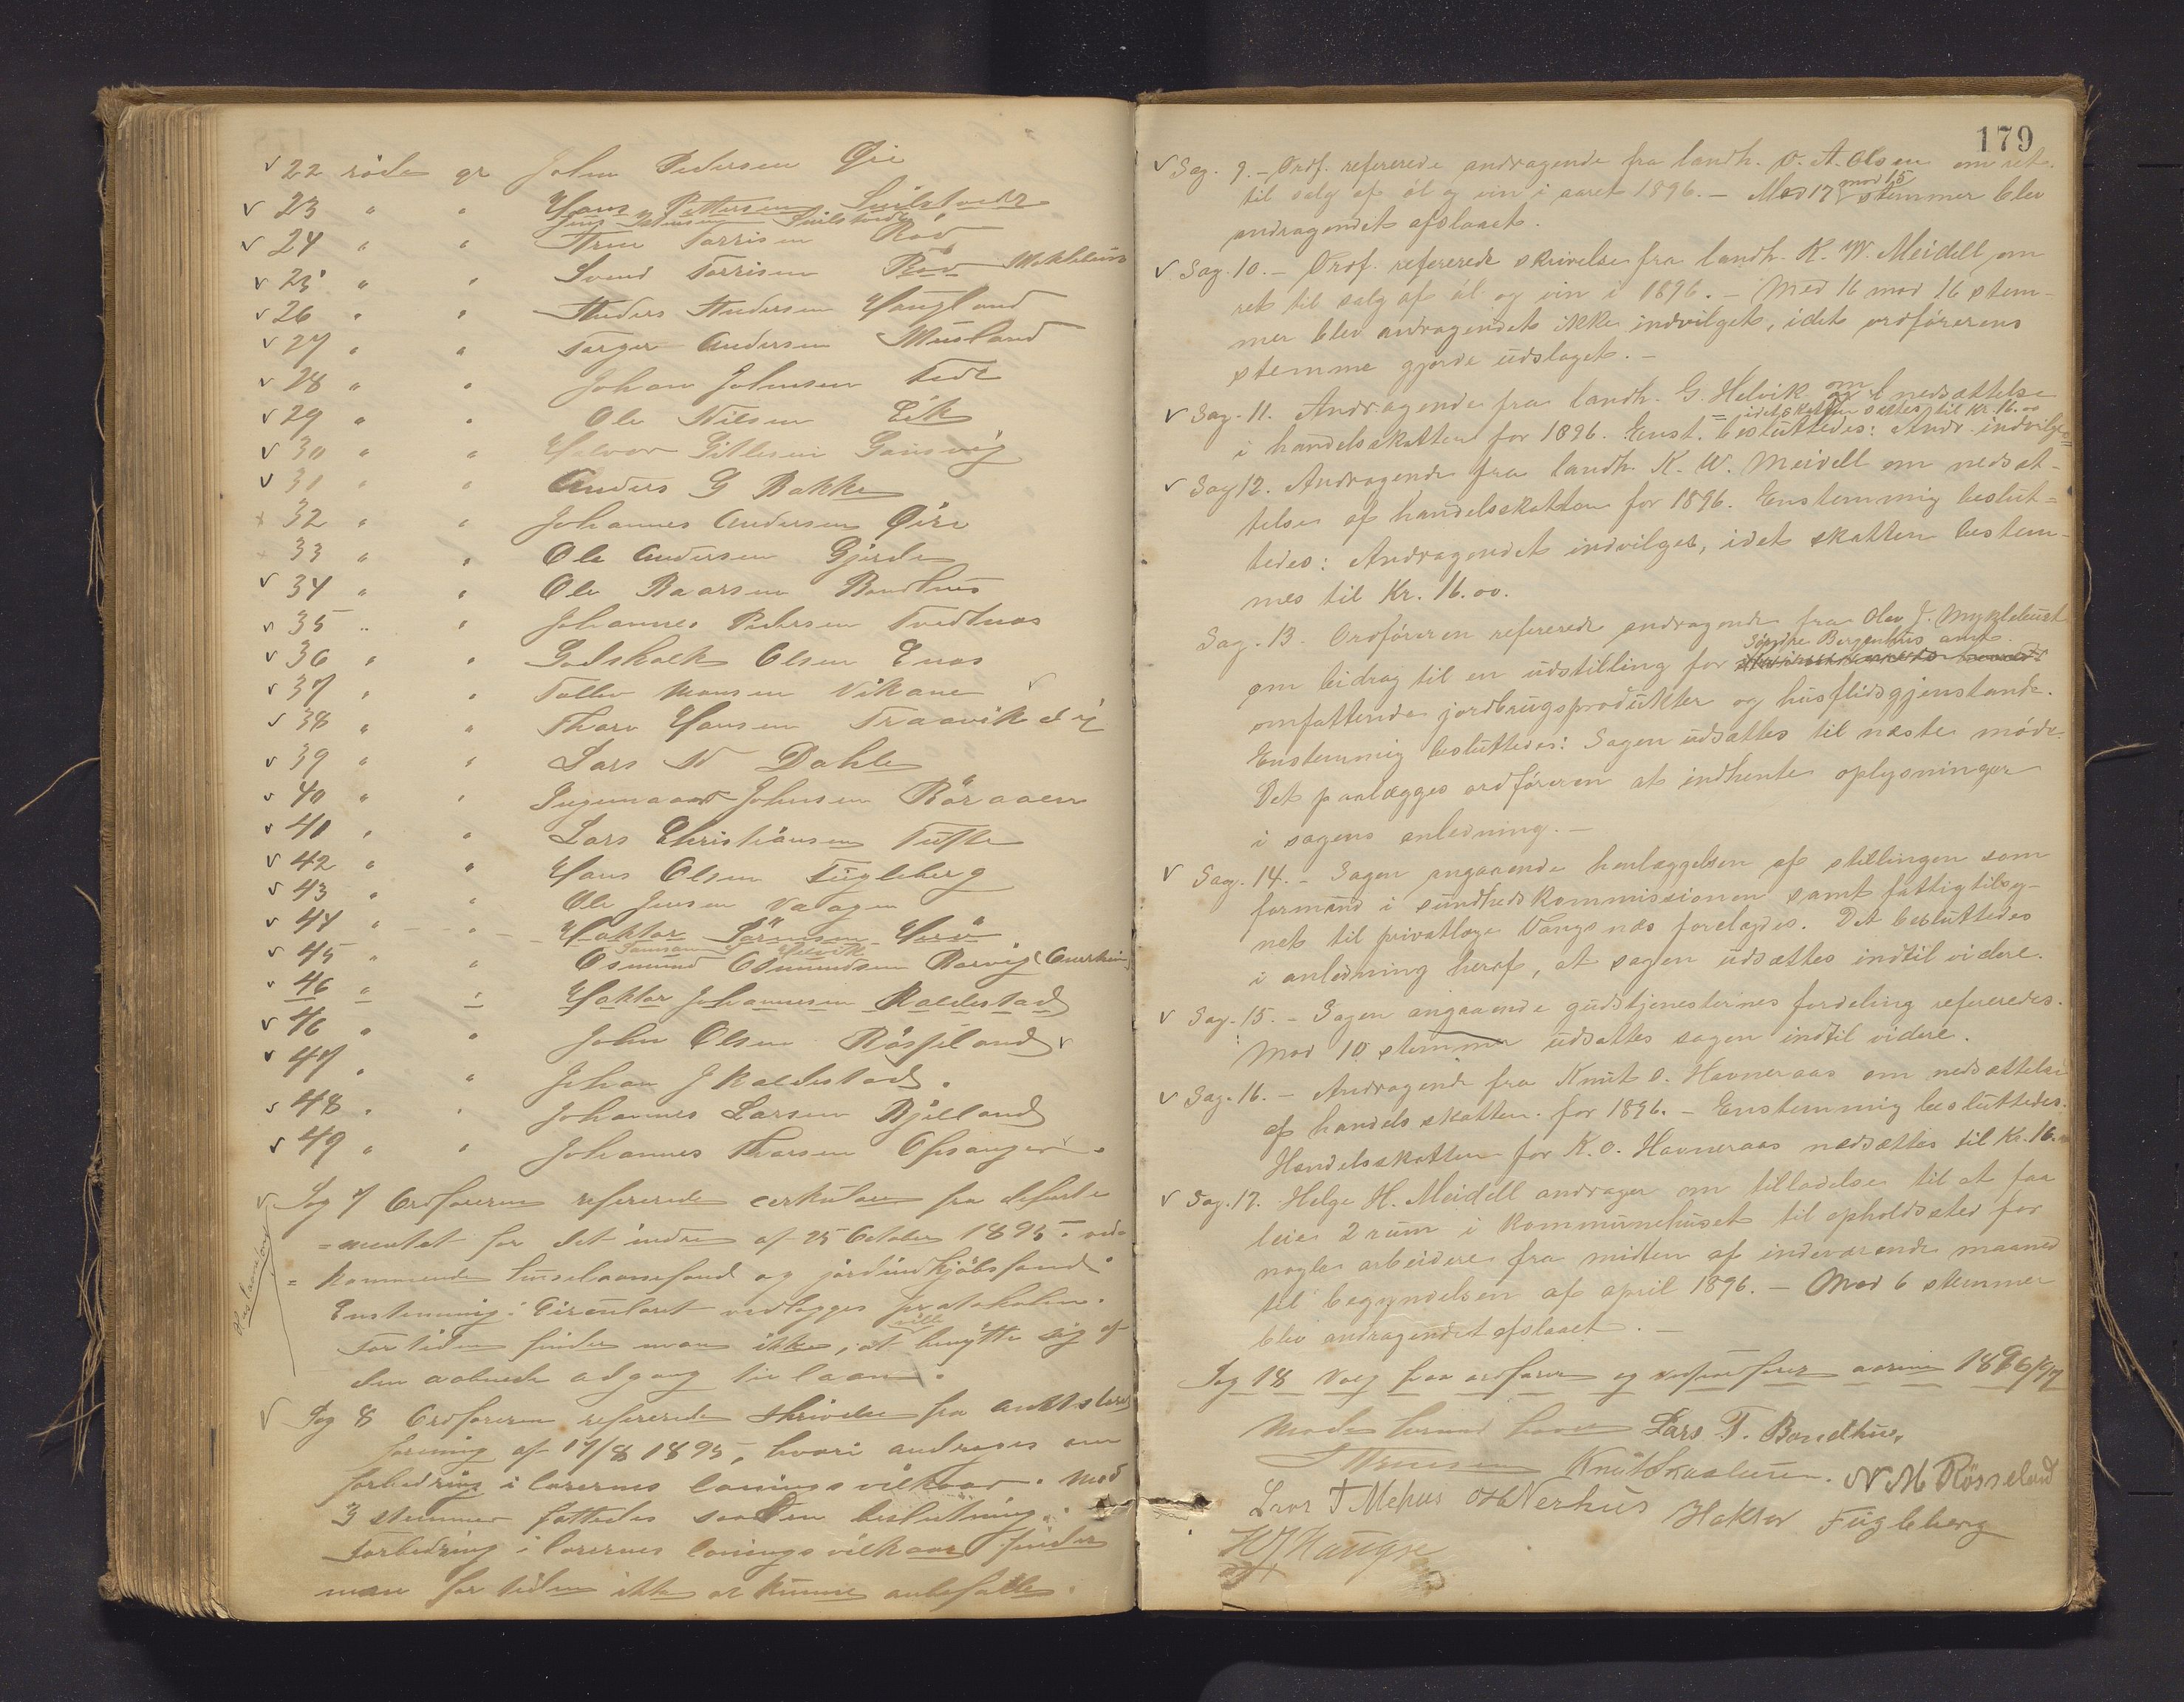 22 röde gr John Pedersen Øie
23 " " Hans Pettersen Snilstvedt
Jens Petersen Snilstvedt
24 " " Arne Torrisen Rød
25 " " Svend Torrisen Rød Mehlhuus
26 " " Anders Andersen Haugland
27 " " Torger Andersen Musland
28 " " Johan Johnsen Tvedt
29 " " Ole Nilsen Eik
30 " " Halvor Gitlesen Gausvig
31 " " Anders G Bakke
32 " " Johannes Andersen Øire
33 " " Ole Andersen Gjerde
34 " " Ole Baarsen Bondhus
35 " " Johannes Pedersen Tvedtnæs
36 " " Godskalk Olsen Enæs
37 " " Tollev Monsen Vikane
38 " " Thore Hansen Traavik
39 " " Lars N Dahle
40 " " Ingemaar Johnsen Røraaen
41 " " Lars Christiansen Tufte
42 " " Hans Olsen Fugleberg
43 " " Ole Jensen Vaagen
44 " " Haktor Sörensen
45 " " Osmund Osmundsen Rørvig
46 " " Haktor Johannesen Kaldestad
46 " " John Olsen Røsseland
47 " " Johan J Kaldestad.
48 " " Johannes Larsen Bjelland
49 " " Johannes Thorsen Opsanger.
Sag 7 Ordføreren refererede cerkulære fra departe
=mentet for det indre af 25 October 1895. ved=
=kommende huselaanefond og jordindkjöbsfond
Enstemmig: Cirkulæret vedlægges protokolen.
For tiden finder man ikke, at ville benytte sig af
den aabnede adgang til laan.
Sag 8 Ordføreren refererede skrivelse fra amtslærer
forening af 17/8 1895, hvori andrages om
forbedring i lærernes lønningsvilkaar. Mod
3 stemmer fattedes saadan beslutning:
Forbedring i lærernes lønningsvilkaar finder
man for tiden ikke at kunne anbefale.
179
Sag. 9. - Ordf. refererede andragende fra landh. O. A. Olsen om ret
til salg af öl og vin i aaret 1896. - Med 17 mod 15 stemmer blev
andragendet afslaaet.
Sag. 10. - Ordf. refererede skrivelse fra landh. K. W. Meidell om
ret til salg af öl og vin i 1896. - Med 16 mod 16 stem-
mer blev andragendet ikke indvilget, idet ordförerens
stemme gjorde udslaget. -
Sag. 11. Andragende fra landh. G. Helvik om nedsættelse
= idet skatten sættes til kr. 16.00
i handelsskatten for 1896. Enst. besluttedes: Andr. indvilges
Sag 12. Andragende fra landh. K. W. Meidell om nedsæt-
telse af handelsskatten for 1896. Enstemmig beslut=
tedes: Andragendet indvilges, idet skatten bestem-
mes til Kr. 16.00.
Sag. 13. Ordföreren refererede andragende fra Olav J. Myklebust
om bidrag til en udstilling for Söndre Bergenhus amt
omfattende jordbrugsprodukter og husflidsgjenstande.
Enstemmig besluttedes: Sagen udsættes til næste möde.
Det paalægges ordföreren at indhente oplysninger
i sagens anledning. -
Sag. 14. - Sagen angaaende henlæggelsen af stillingen som
formand i sundhedskommissionen samt fattigtilsy-
net til privatlæge Vangsnæs forelagdes. Det besluttedes
i anledning heraf, at sagen udsættes indtil videre.
Sag. 15. - Sagen angaaende gudstjenesternes fordeling refereredes.
Mod 10 stemmer udsattes sagen indtil videre.
Sag. 16. - Andragende fra Knut O. Havneraas om nedsættelse
af handelsskatten for 1896. - Enstemmig besluttedes:
Handelsskatten for K. O. Havneraas nedsættes til Kr. 16.
Sag. 17. Helge H. Meidell andrager om tilladelse til at faa
leie 2 rum i kommunehuset til opholdssted for
nogle arbeidere fra midten af indeværende maaned
til begyndelsen af april 1896. - Mod 6 stemmer
blev andragendet afslaaet. -
Sag 18 Valg paa ordfører og viceordfører aarene 1896/97
Møde hermed hævet Lars T. Bondhus.
Knut Skaaluren. N M Rösseland
Lars T Mehus O H Nerhus Haktor Fugleberg
H J Haugse